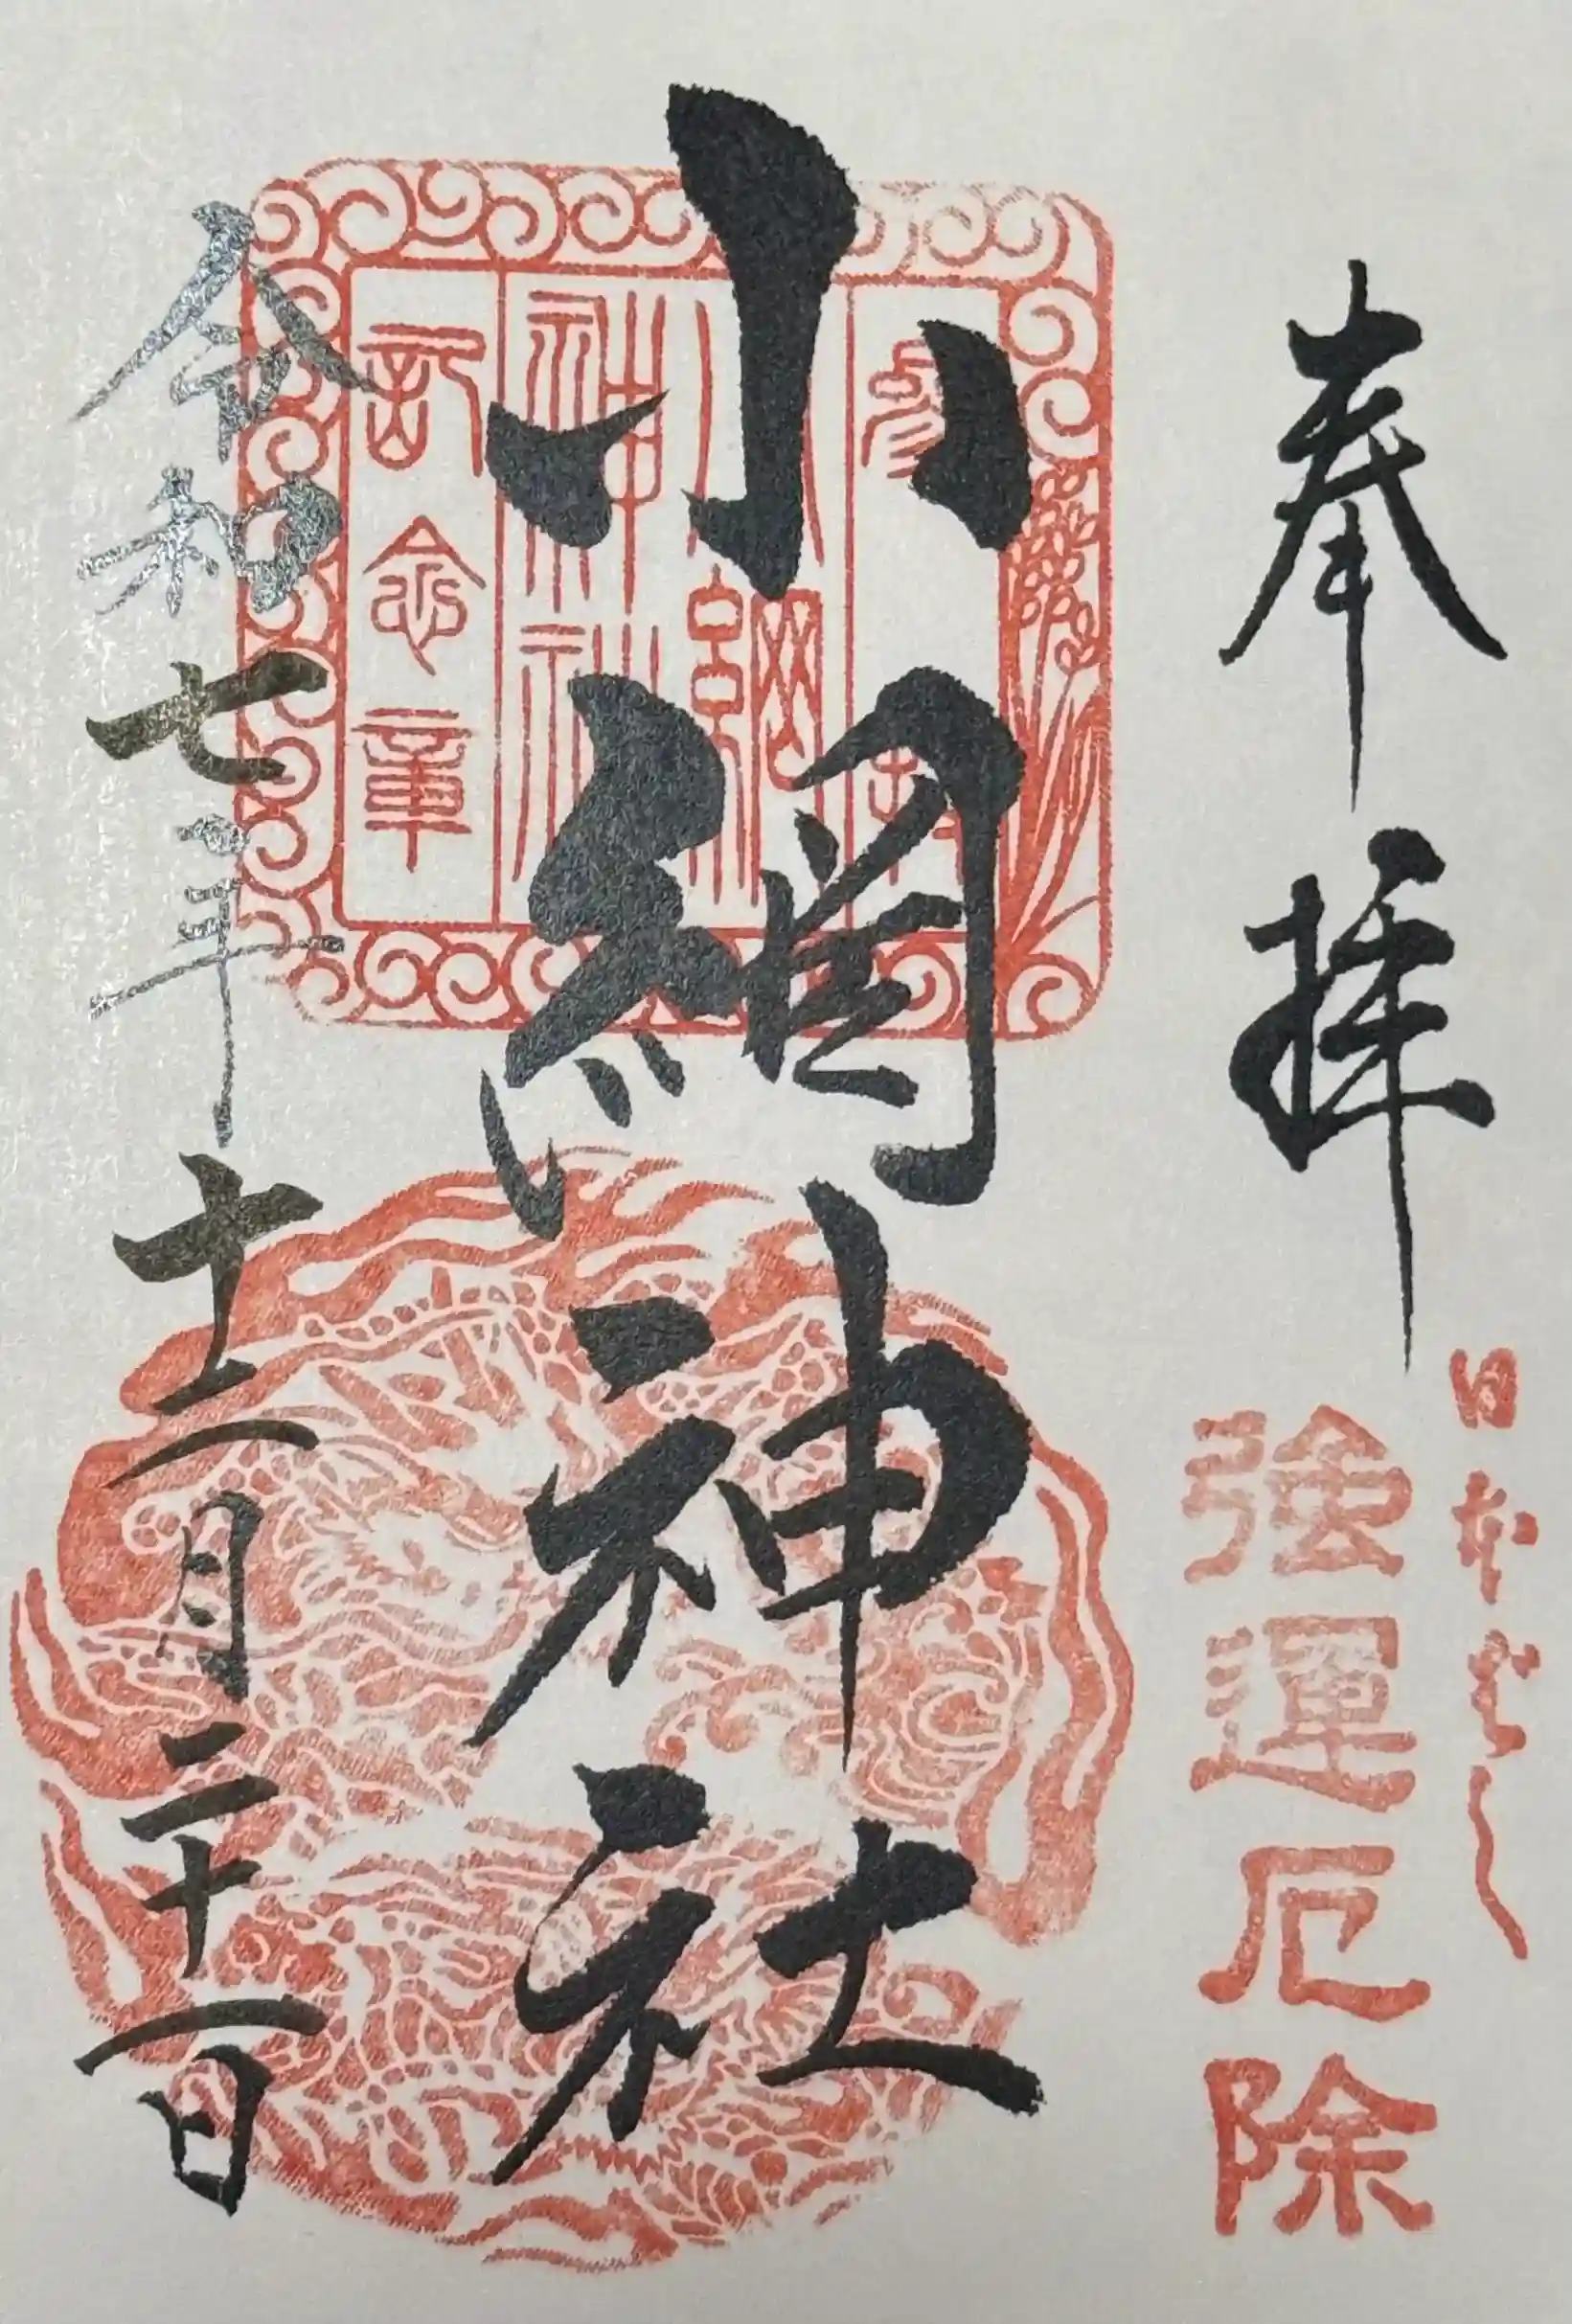 奉拝
日本ばし
強運厄除
小網神社
参拝
小網
神社
記念章
令和七年十二月二十一日